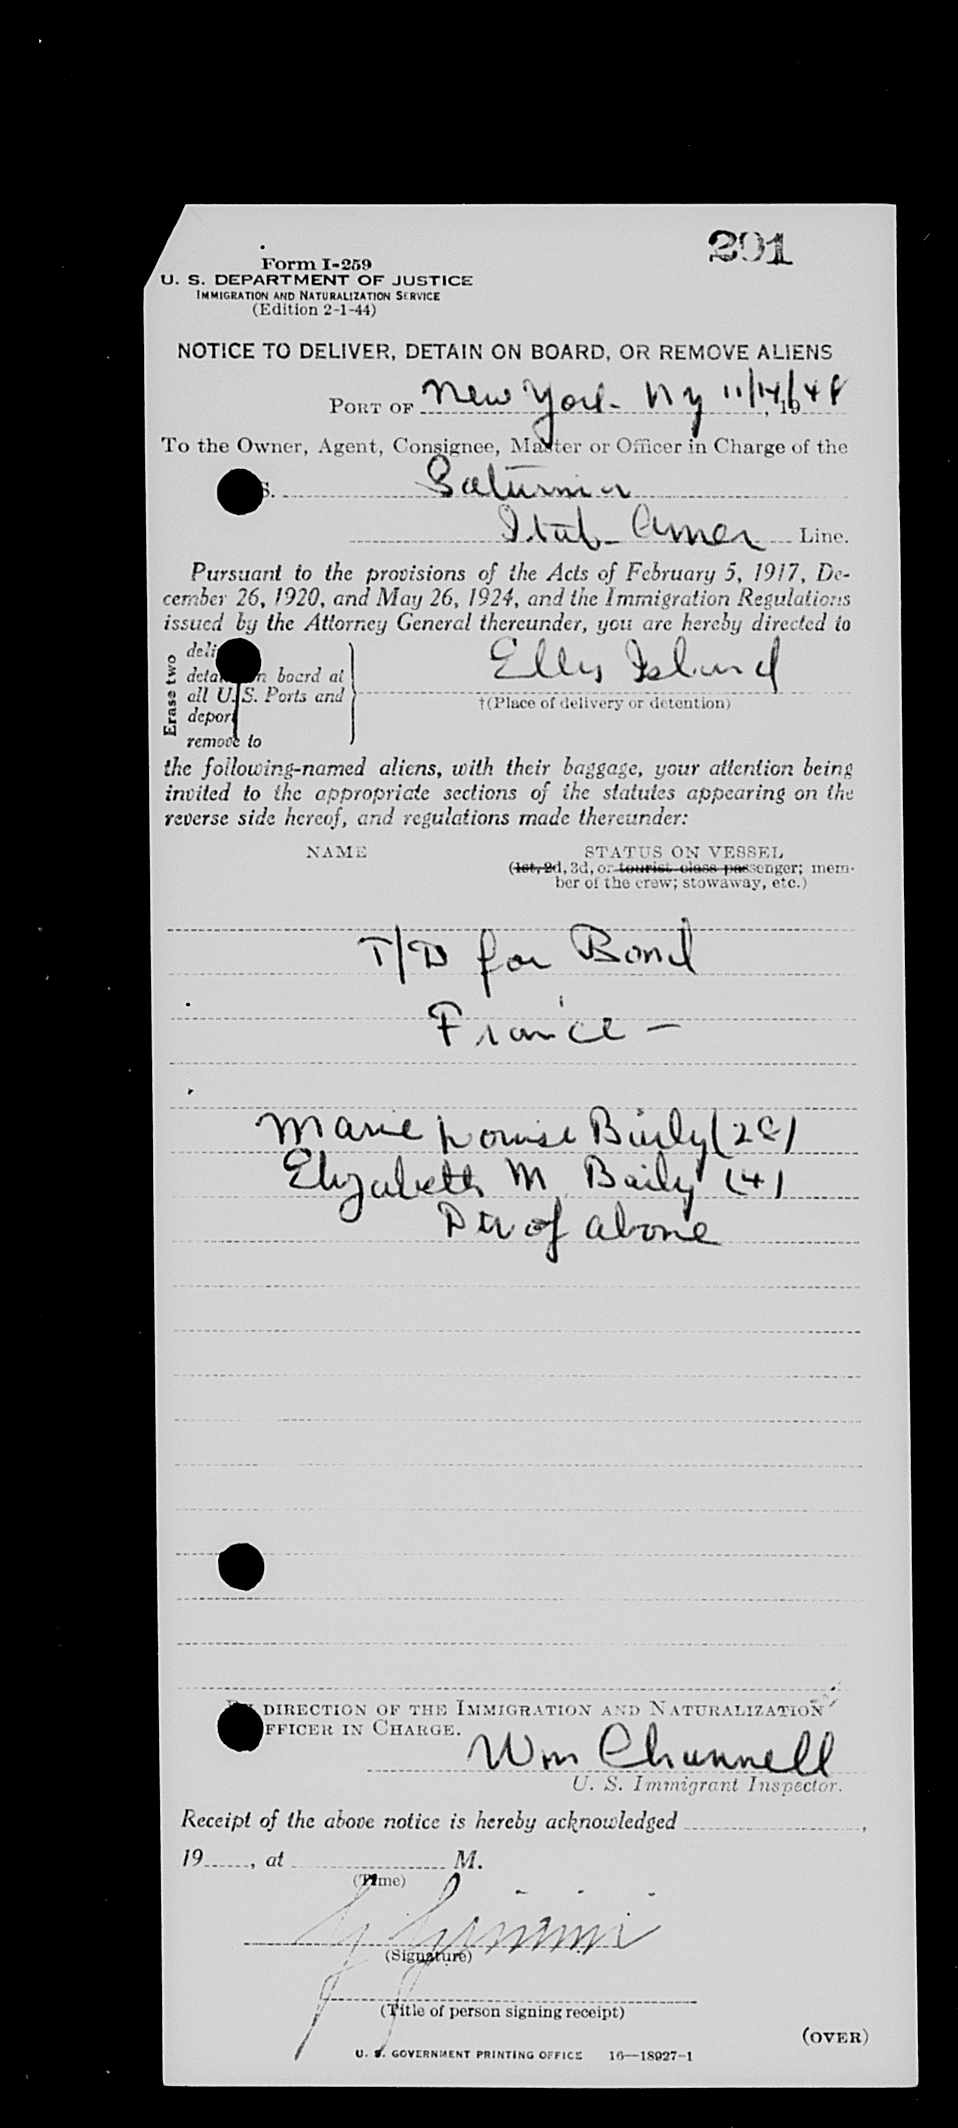 291
Form I-259
U. S. DEPARTMENT OF JUSTICE
IMMIGRATION AND NATURALIZATION SERVICE
(Edition 2-1-44)
NOTICE TO DELIVER, DETAIN ON BOARD, OR REMOVE ALIENS
PORT OF New York NY 11/14/48, 19
To the Owner, Agent, Consignee, Master or Officer in Charge of the
S. Saturnia
Ital- Amer Line.
Pursuant to the provisions of the Acts of February 5, 1917, De-
cember 26, 1920, and May 26, 1924, and the Immigration Regulations
issued by the Attorney General thereunder, you are hereby directed to
Erase two
deli
deta n board at
all U. S. Ports and
deport
remove to
Ellis Island
†(Place of delivery or detention)
the following-named aliens, with their baggage, your attention being
invited to the appropriate sections of the statutes appearing on the
reverse side hereof, and regulations made thereunder:
NAME STATUS ON VESSEL
(1st, 2d, 3d, or tourist class passenger; mem-
ber of the crew; stowaway, etc.)
T/D for Bond
France -
Marie Louise Baily
Elizabeth M. Baily (4)
Dtr of above
BY DIRECTION OF THE IMMIGRATION AND NATURALIZATION
FFICER IN CHARGE.
Wm Channell
U. S. Immigrant Inspector.
Receipt of the above notice is hereby acknowledged ,
19 , at M.
(Time)
(Signature)
(Title of person signing receipt)
(OVER)
U. S. GOVERNMENT PRINTING OFFICE 16—18927-1